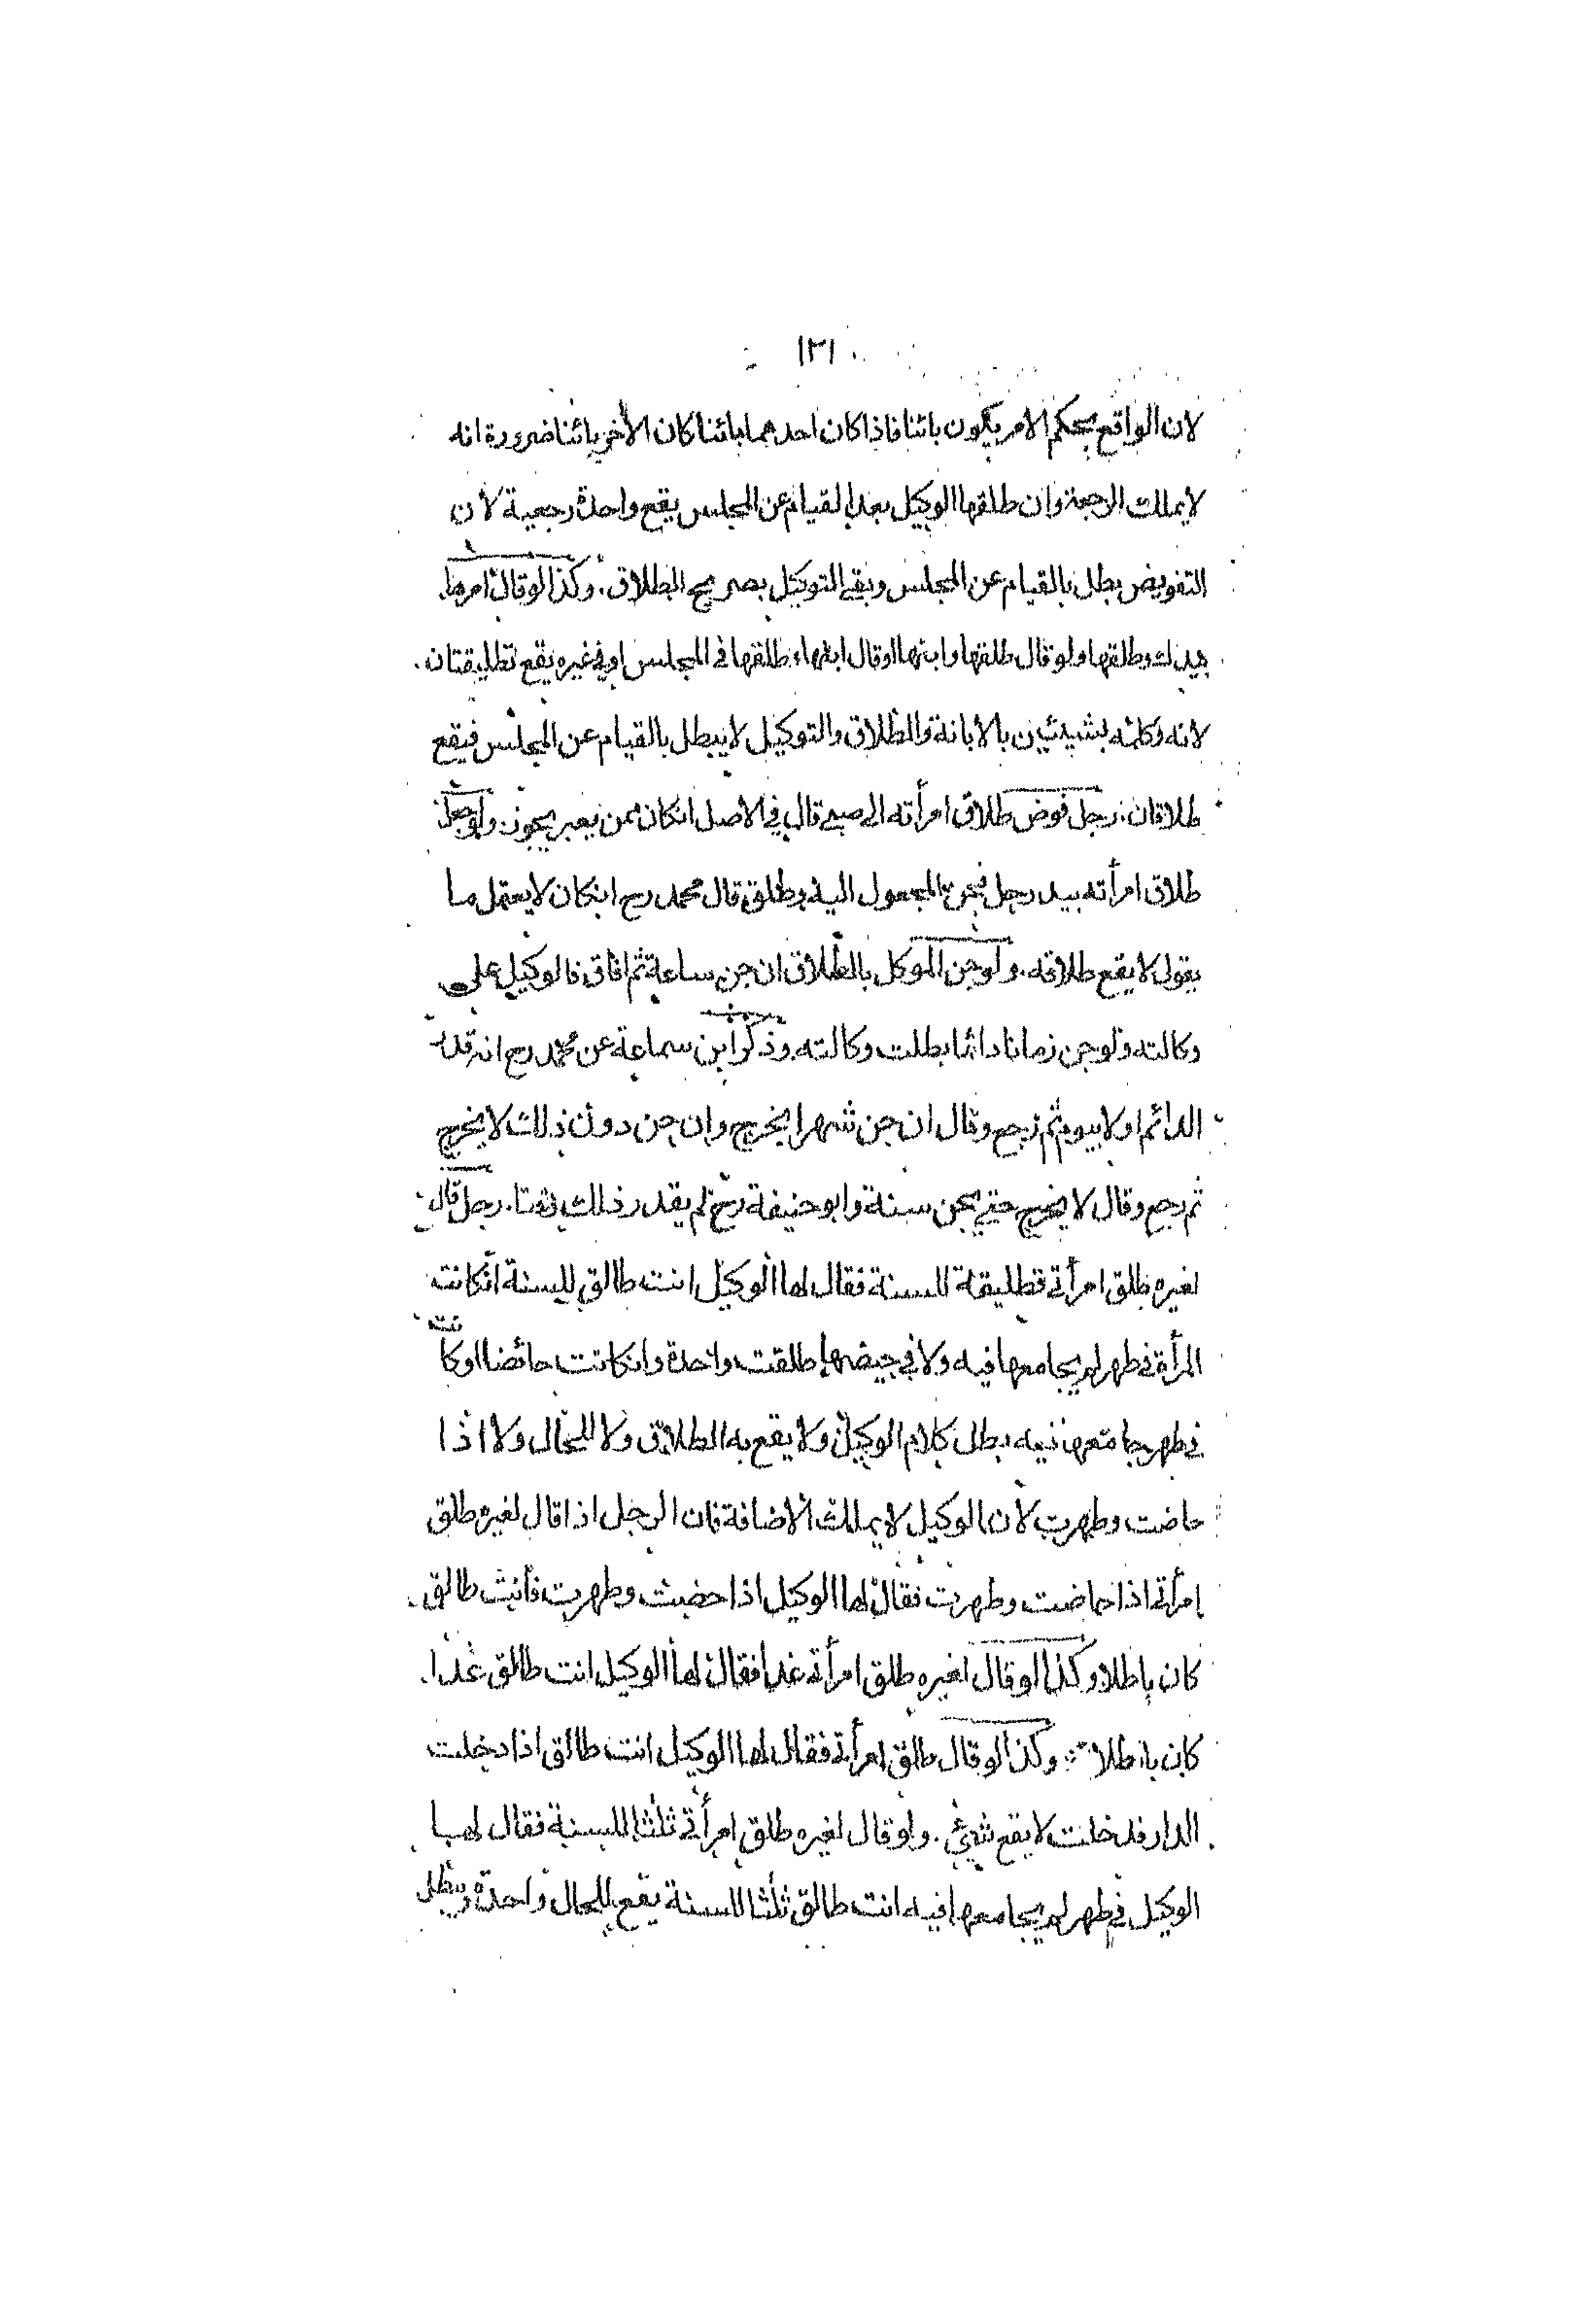 ١٢١
لان الواقع بحكم الامر يكون بائنا فاذا كان احدهما بائنا كان الأخر بائنا ضرورة انه
لا يملك الرجعة وان طلقها الوكيل بعد القيام عن المجلس يقع واحدة رجعية لان
التفويض بطل بالقيام عن المجلس وبقى التوكيل بصريح الطلاق. وكذا لو قال امرها
بيدك وطلقها ولو قال طلقها وابنها او قال ابنها وطلقها فى المجلس او فى غيره يقع تطليقتان.
لانه وكله بشيئين بالابانة والطلاق والتوكيل لا يبطل بالقيام عن المجلس فيقع
طلاقان. رجل فوض طلاق امرأته الى صبى قال فى الاصل انكان ممن يعبر يجوز ولو جعل
طلاق امرأته بيد رجل فجن المجعول اليه وطلق قال محمد رح انكان لا يعقل ما
يقول لا يقع طلاقه. ولو جن الموكل بالطلاق ان جن ساعة ثم افاق فالوكيل على
وكالته ولو جن زمانا دائما بطلت وكالته. وذكر ابن سماعة عن محمد رح انه قدر
الدائم اولا بيوم ثم رجع وقال ان جن شهرا يخرج وان جن دون ذلك لا يخرج
ثم رجع وقال لا يخرج حتى يجن سنة وابو حنيفة رح لم يقدر ذلك وقتا. رجل قال
لغيره طلق امرأتى تطليقة للسنة فقال لها الوكيل انت طالق للسنة انكانت
المرأة فى طهر لم يجامعها فيه ولا فى حيضها طلقت واحدة وانكانت حائضا او كانت
فى طهر جامعها فيه بطل كلام الوكيل ولا يقع به الطلاق ولا للحال ولا اذا
حاضت وطهرت لان الوكيل لا يملك الاضافة فان الرجل اذا قال لغيره طلق
امرأتى اذا حاضت وطهرت فقال لها الوكيل اذا حضت وطهرت فأنت طالق.
كان باطلا وكذا لو قال لغيره طلق امرأته غدا فقال لها الوكيل انت طالق غدا.
كان باطلا وكذا لو قال طلق امرأتى فقال لها الوكيل انت طالق اذا دخلت
الدار فدخلت لا يقع شئ. ولو قال لغيره طلق امرأتى ثلثا للسنة فقال لها
الوكيل فى طهر لم يجامعها فيه انت طالق ثلثا للسنة يقع للحال واحدة ويبطل